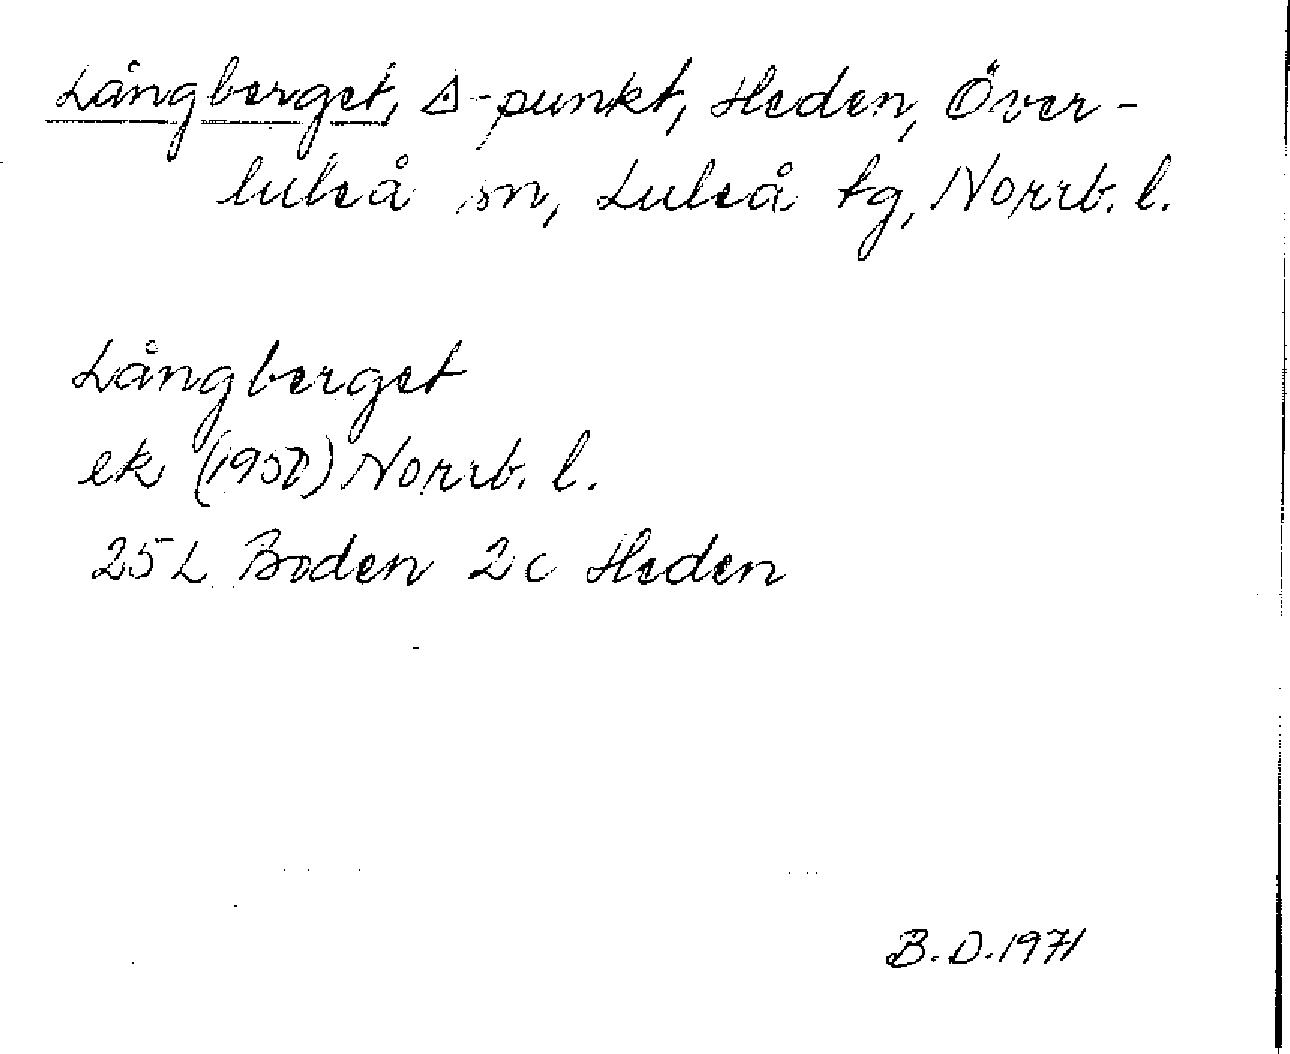 Långberget, △-punkt, Heden, Över-
luleå sn, Luleå tg, Norrb. l.
Långberget
ek Norrb. l.
25 L Boden 2c Heden
B.D. 1971